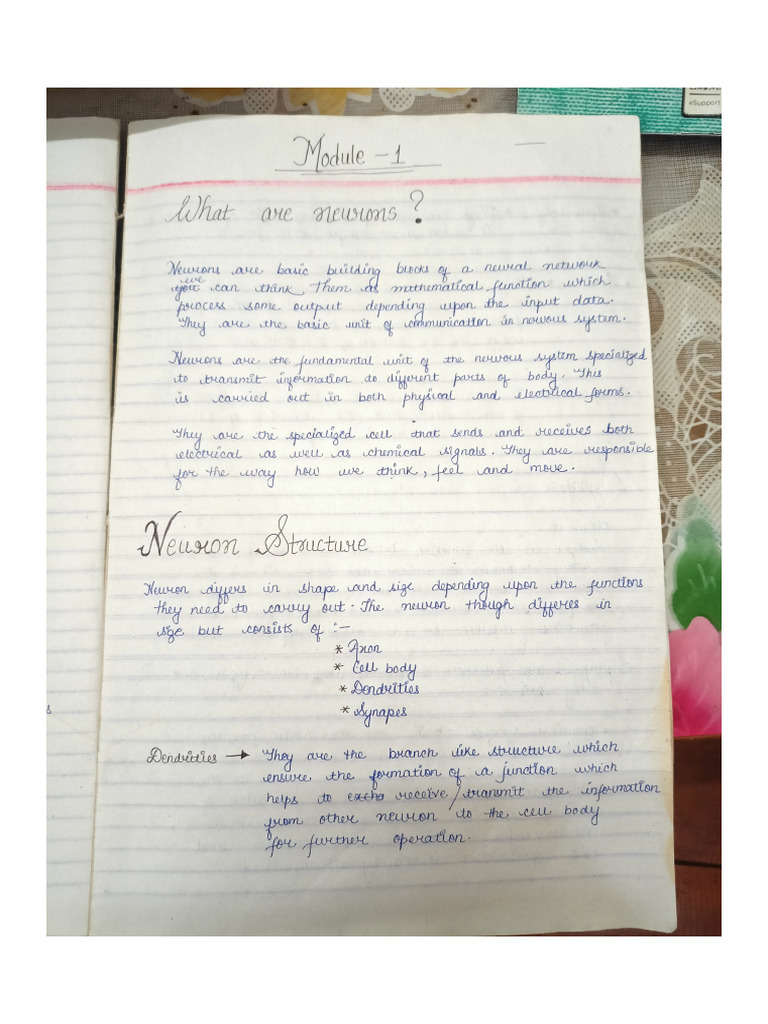 eSupport
Module - 1
What are neurons?
Neurons are basic building blocks of a neural network
we
you can think them as mathematical function which
process some output depending upon the input data.
They are the basic unit of communication in nervous system.
Neurons are the fundamental unit of the nervous system specialized
to transmit information to different parts of body. This
is carried out in both physical and electrical forms.
They are the specialized cell that sends and receives both
electrical as well as chemical signals. They are responsible
for the way how we think, feel and move.
Neuron Structure
Neuron differs in shape and size depending upon the functions
they need to carry out. The neuron though differes in
size but consists of :-
* Axon
* Cell body
* Dendrities
* Synapes
s
Dendrities → They are the branch like structure which
ensure the formation of a junction which
helps to excha receive/transmit the information
from other neuron to the cell body
for further operation.